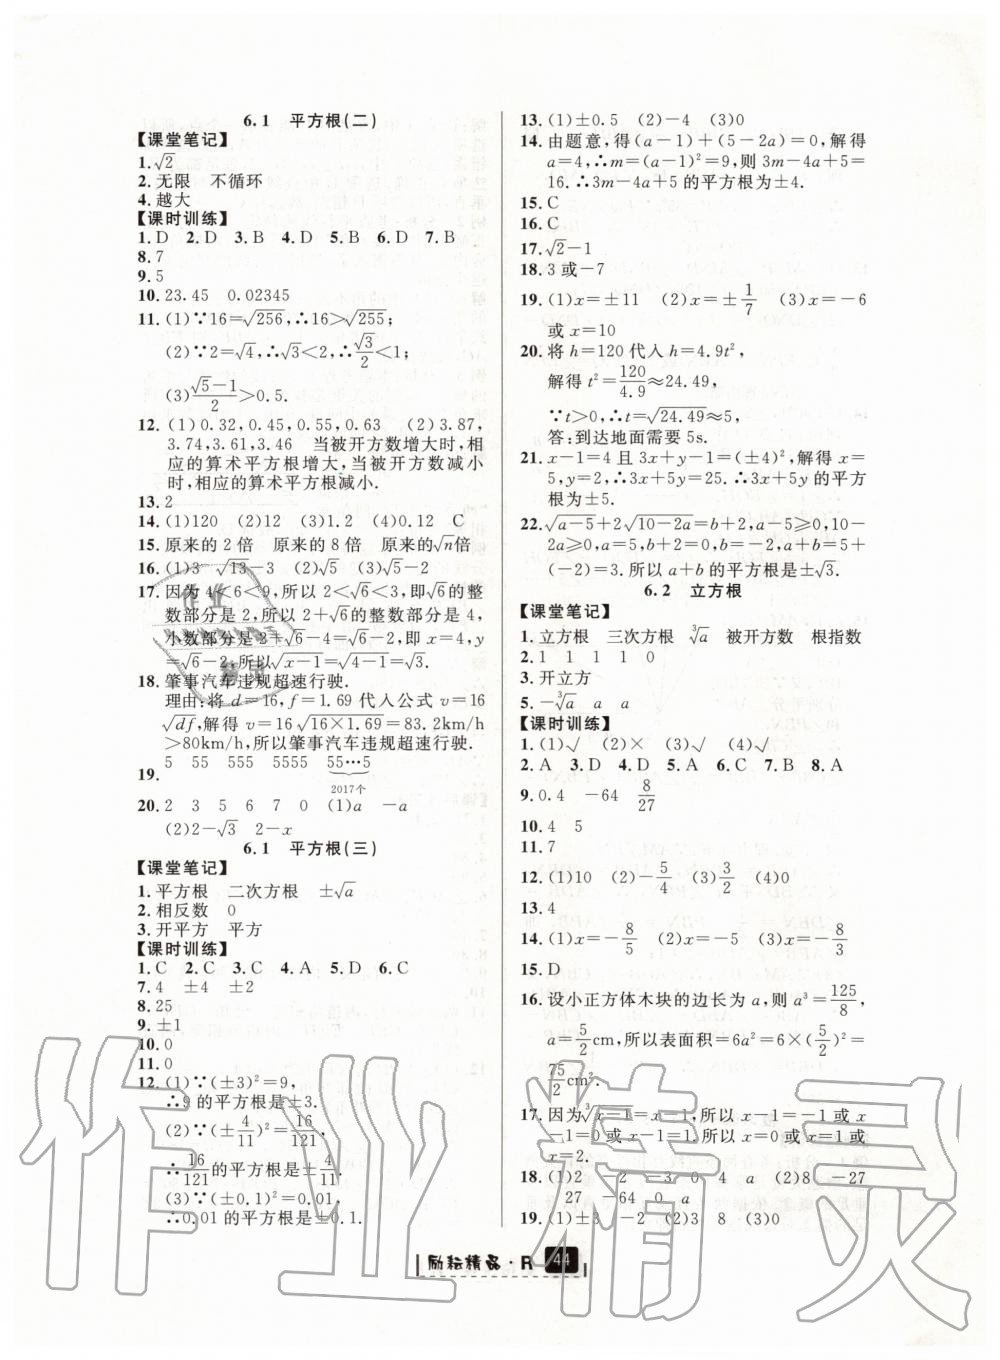 6.1 平方根(二)
【课堂笔记】
1. √2
2. 无限 不循环
4. 越大
【课时训练】
1. D 2. D 3. B 4. D 5. B 6. D 7. B
8. 7
9. 5
10. 23.45 0.02345
11. (1)∵16=√256,∴16>√255;
(2)∵2=√4,∴√3<2,∴√3/2<1;
(3)(√5-1)/2>0.5.
12. (1)0.32,0.45,0.55,0.63 (2)3.87,
3.74,3.61,3.46 当被开方数增大时,相
应的算术平方根增大,当被开方数减小
时,相应的算术平方根减小.
13. 2
14. (1)120 (2)12 (3)1.2 (4)0.12 C
15. 原来的2倍 原来的8倍 原来的√n倍
16. (1)3 √13-3 (2)√5 (3)√5-2
17. 因为4<6<9,所以2<√6<3,即√6的整
数部分是2,所以2+√6的整数部分是4,
小数部分是2+√6-4=√6-2,即x=4,y
=√6-2,所以√(x-1)=√(4-1)=√3.
18. 肇事汽车违规超速行驶.
理由:将d=16,f=1.69代入公式v=16
√(df),解得v=16√(16×1.69)=83.2km/h
>80km/h,所以肇事汽车违规超速行驶.
19. 5 55 555 5555 55…5
2017个
20. 2 3 5 6 7 0 (1)a -a
(2)2-√3 2-x
6.1 平方根(三)
【课堂笔记】
1. 平方根 二次方根 ±√a
2. 相反数 0
3. 开平方 平方
【课时训练】
1. C 2. C 3. C 4. A 5. D 6. C
7. 4 ±4 ±2
8. 25
9. ±1
10. 0
11. 0
12. (1)∵(±3)²=9,
∴9的平方根是±3.
(2)∵(±4/11)²=16/121,
∴16/121的平方根是±4/11.
(3)∵(±0.1)²=0.01,
∴0.01的平方根是±0.1.
13. (1)±0.5 (2)-4 (3)0
14. 由题意,得(a-1)+(5-2a)=0,解得
a=4,∴m=(a-1)²=9,则3m-4a+5=
16.∴3m-4a+5的平方根为±4.
15. C
16. C
17. √2-1
18. 3或-7
19. (1)x=±11 (2)x=±1/7 (3)x=-6
或x=10
20. 将h=120代入h=4.9t²,
解得t²=120/4.9≈24.49,
∵t>0,∴t=√24.49≈5,
答:到达地面需要5s.
21. x-1=4且3x+y-1=(±4)²,解得x=
5,y=2,∴3x+5y=25.∴3x+5y的平方
根为±5.
22. √(a-5)+2√(10-2a)=b+2,a-5≥0,10-
2a≥0,a=5,b+2=0,b=-2,a+b=5+
(-2)=3.所以a+b的平方根是±√3.
6.2 立方根
【课堂笔记】
1. 立方根 三次方根 ³√a 被开方数 根指数
2. 1 1 1 1 0
3. 开立方
5. -³√a a a
【课时训练】
1. (1)√ (2)× (3)√ (4)√
2. A 3. D 4. D 5. A 6. C 7. B 8. A
9. 0.4 -64 8/27
10. 4 5
11. 7
12. (1)10 (2)-5/4 (3)3/2 (4)0
13. 4
14. (1)x=-8/5 (2)x=-5 (3)x=-8/3
15. D
16. 设小正方体木块的边长为a,则a³=125/8,
a=5/2cm,所以表面积=6a²=6×(5/2)²=
75/2cm².
17. 因为³√(x-1)=x-1,所以x-1=-1或x
-1=0或x-1=1.所以x=0或x=1或
x=2.
18. (1)2 -2 -3 0 4 a (2)8 -27
27 -64 0 a
19. (1)±3 -2 (2)3 8 (3)0
励耘精品·R 44
作业精灵